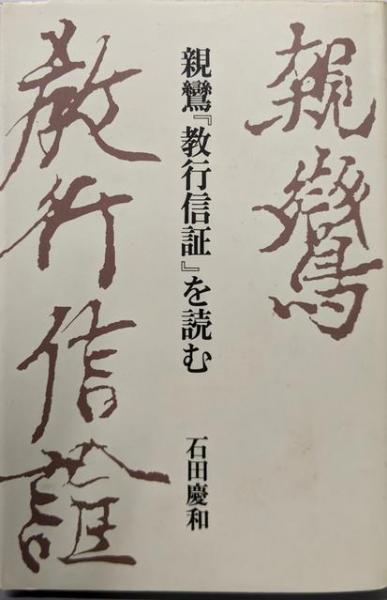 親鸞
親鸞『教行信証』を読む
石田慶和
教行信證